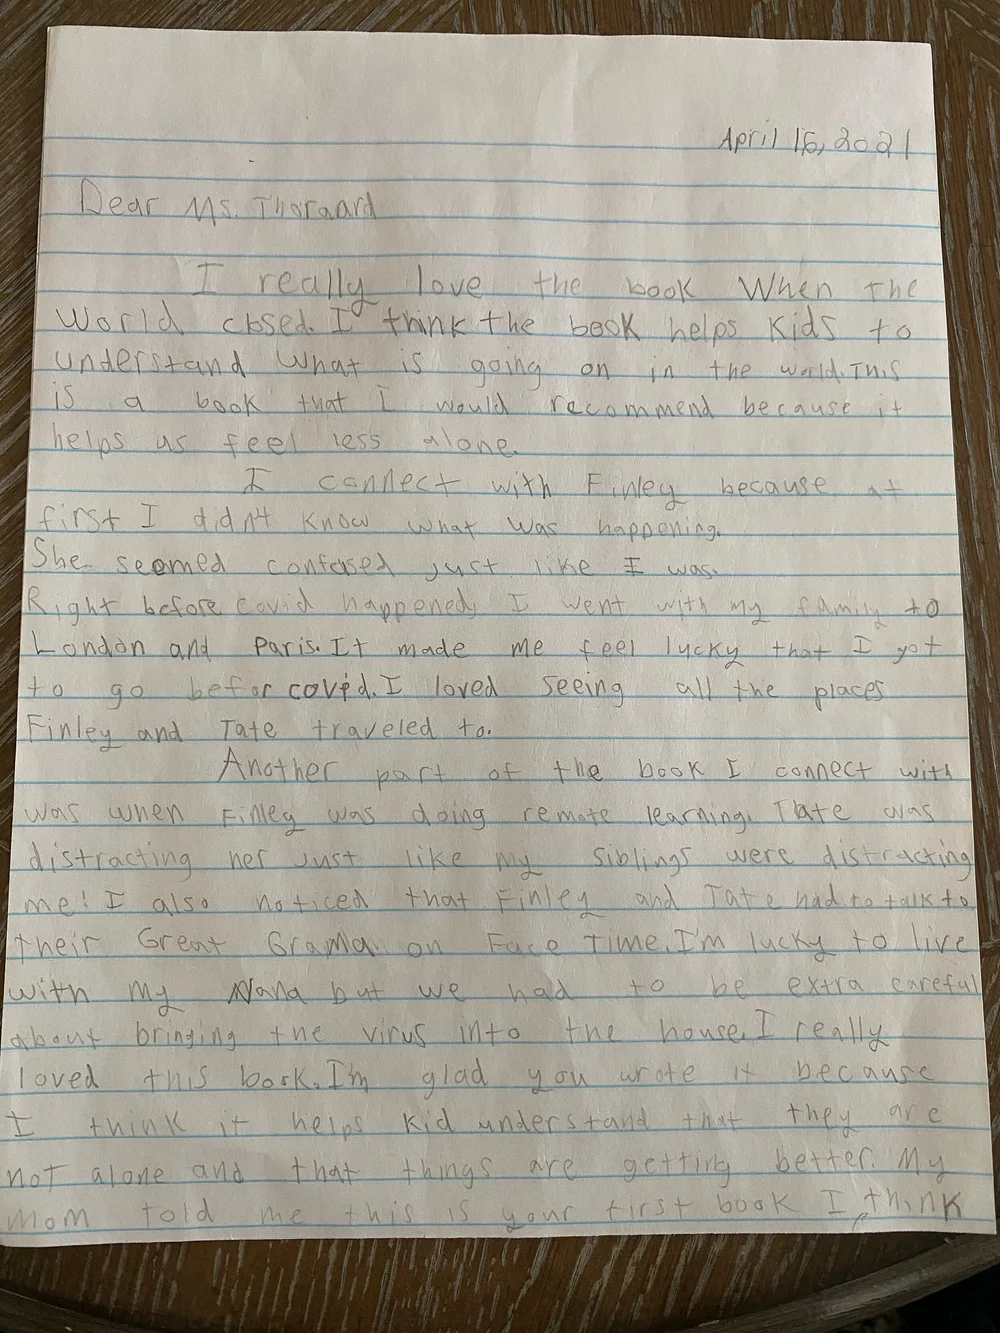 April 16, 2021
Dear Ms. Thoraard
I really love the book When the
World closed. I think the book helps kids to
understand what is going on in the world. This
is a book that I would recommend because it
helps us feel less alone.
I connect with Finley because at
first I didn't know what was happening.
She seemed confused just like I was.
Right before covid happened, I went with my family to
London and Paris. It made me feel lucky that I got
to go befor covid. I loved seeing all the places
Finley and Tate traveled to.
Another part of the book I connect with
was when Finley was doing remote learning. Tate was
distracting her just like my siblings were distracting
me! I also noticed that Finley and Tate had to talk to
their Great Grama on Face Time. I'm lucky to live
with my Nana but we had to be extra careful
about bringing the virus into the house. I really
loved this book. I'm glad you wrote it because
I think it helps kid understand that they are
not alone and that things are getting better. My
mom told me this is your first book I think